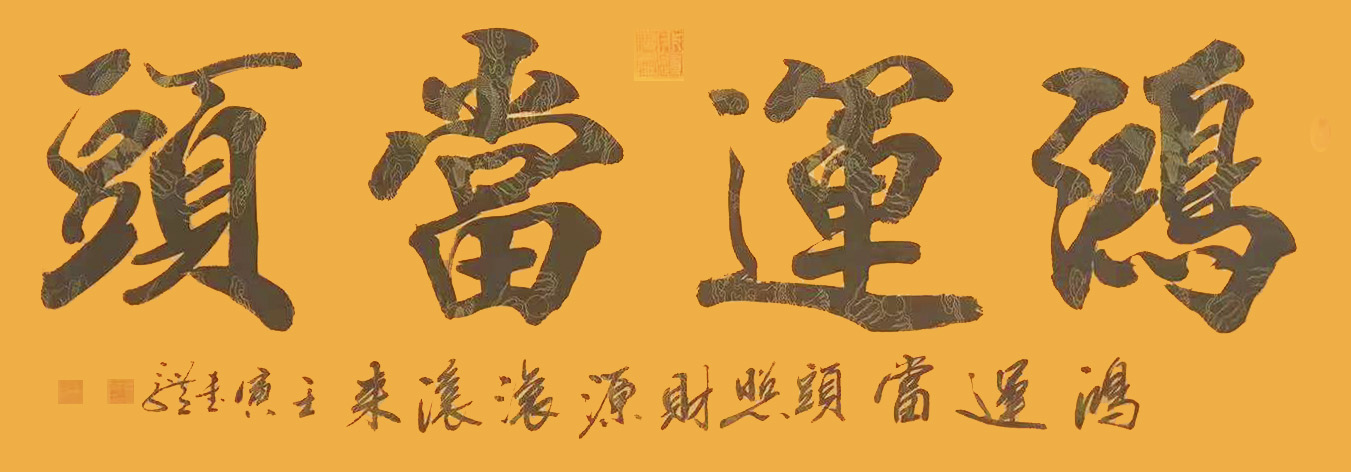 鴻運當頭
鴻運當頭照財源滾滾來壬寅春